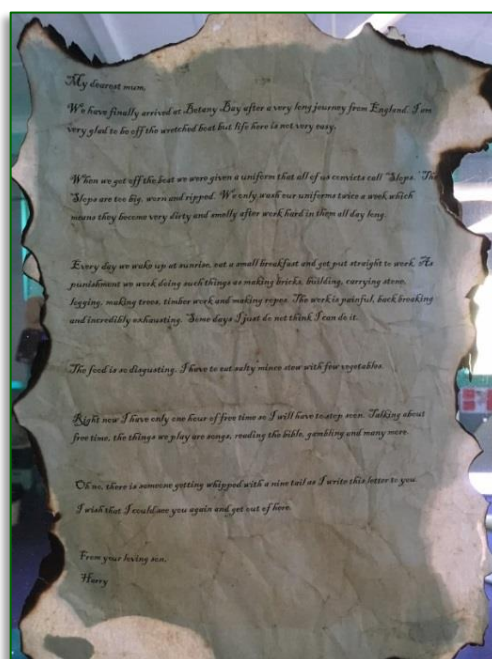 My dearest mum,
We have finally arrived at Botany Bay after a very long journey from England. I am
very glad to be off the wretched boat but life here is not very easy.
When we got off the boat we were given a uniform that all of us convicts call "Slops. "The
Slops are too big, worn and ripped. We only wash our uniforms twice a week which
means they become very dirty and smelly after work hard in them all day long.
Every day we wake up at sunrise, eat a small breakfast and get put straight to work. As
punishment we work doing such things as making bricks, building, carrying stone,
logging, making trees, timber work and making ropes. The work is painful, back breaking
and incredibly exhausting. Some days I just do not think I can do it.
The food is so disgusting. I have to eat salty mince stew with few vegetables.
Right now I have only one hour of free time so I will have to stop soon. Talking about
free time, the things we play are songs, reading the bible, gambling and many more.
Oh no, there is someone getting whipped with a nine tail as I write this letter to you.
I wish that I could see you again and get out of here.
From your loving son,
Harry